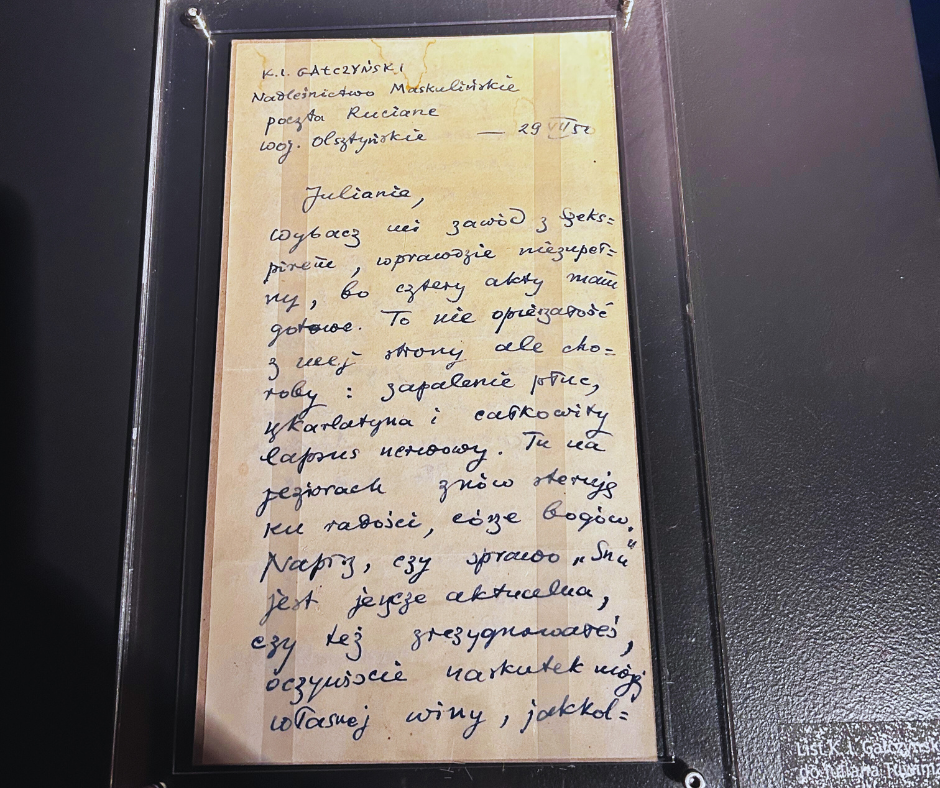 K.I. GAŁCZYŃSKI
Nadleśnictwo Maskulińskie
poczta Ruciane
woj. Olsztyńskie — 29 VII 50
Julianie,
wybacz mi zawód z Szeks=
pirem, wprawdzie niezupeł=
ny, bo cztery akty mam
gotowe. To nie opieszałość
z mej strony ale cho=
roby: zapalenie płuc,
szkarlatyna i całkowity
lapsus nerwowy. Tu na
jeziorach znów steruję
ku radości, córze bogów.
Napisz, czy sprawa „Snu"
jest jeszcze aktualna,
czy też zrezygnowałeś,
oczywiście naskutek mojej
własnej winy, jakkol=
List K. I. Gałczyńsk
do Juliana